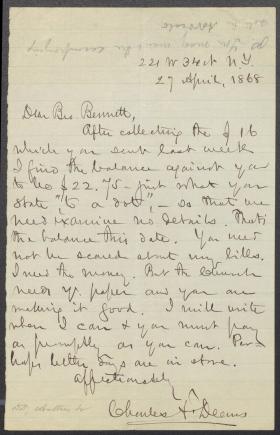 221 W 34th N.Y.
27 April, 1868
Dear Bro Bennett,
After collecting the $16
which you sent last week
I find the balance against you
to be $22.75 - just what you
state "to a dot", - so that we
need examine no details. That's
the balance this date. You need
not be scared about my bills.
I need the money. But the Church
needs yr. paper and you are
making it good. I will write
when I can & you must pay
as promptly as you can. Per-
haps better days are in store.
Affectionately
Charles F. Deems